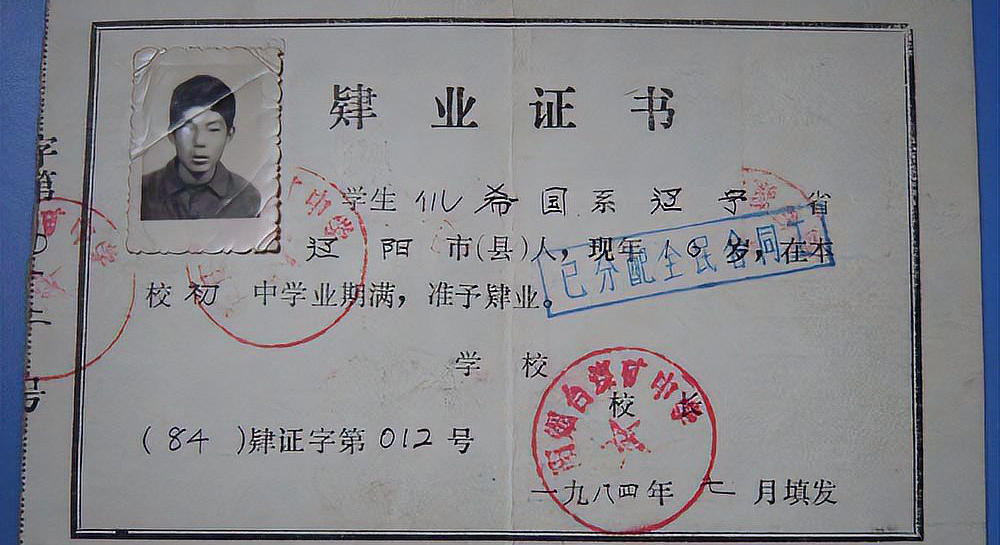 肄业证书
学生仉希国系辽宁省
辽阳市(县)人，现年16岁，在本
校初中学业期满，准予肄业。
已分配全民合同工
学校
校长
(84)肄证字第012号
一九八四年七月填发
烟台煤矿中学
字第
号